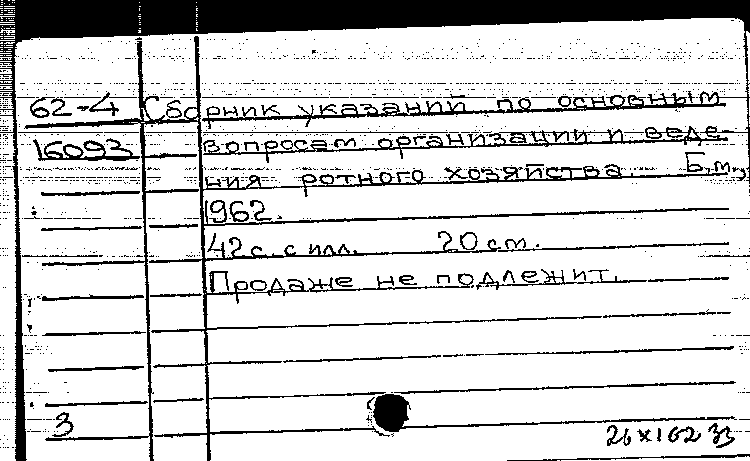 62-4 Сборник указаний по основным
16093 вопросам организации и веде-
ния ротного хозяйства. Б.м.,
1962.
42 с. с илл. 20 см.
Продаже не подлежит.
3
26 x 162 33